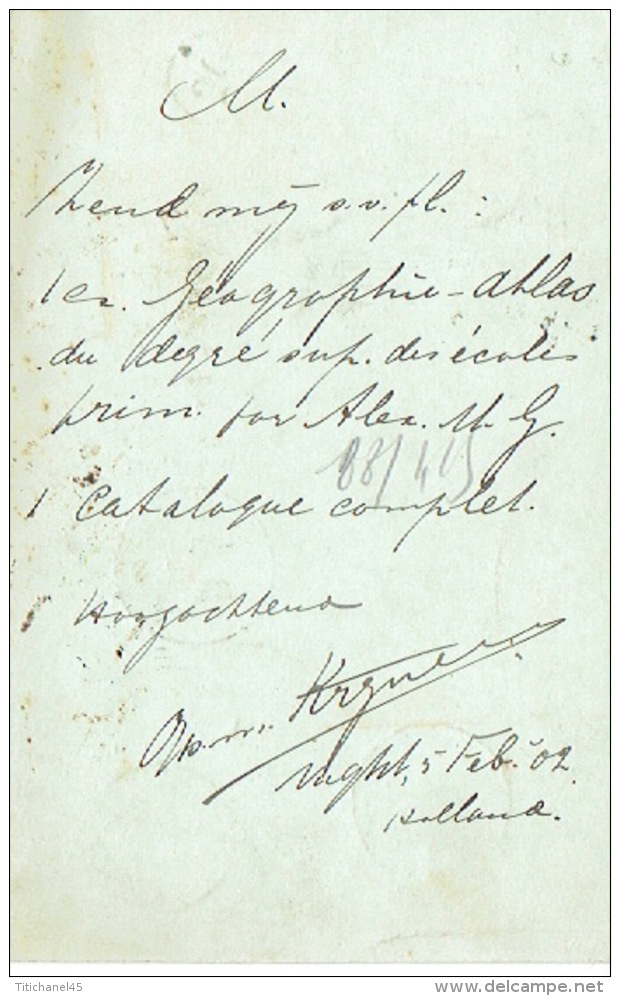 M.
Zend mij s.v.pl. :
1 ex. Géographie-atlas
du degré sup. des écoles
prim. par Alex. M. G.
1 Catalogue complet.
Hoogachtend
5 Feb. 02
Holland.
Titichanel45
delcampe.net